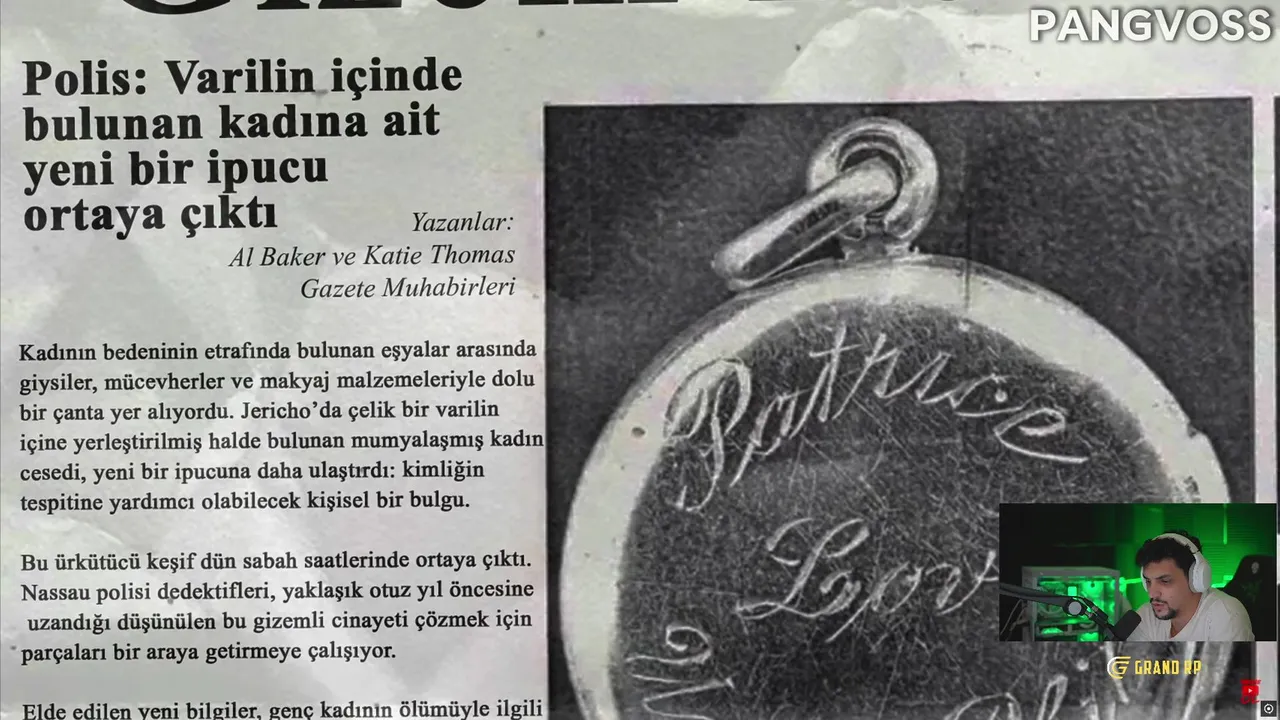 PANGVOSS
Polis: Varilin içinde
bulunan kadına ait
yeni bir ipucu
ortaya çıktı
Yazanlar:
Al Baker ve Katie Thomas
Gazete Muhabirleri
Kadının bedeninin etrafında bulunan eşyalar arasında
giysiler, mücevherler ve makyaj malzemeleriyle dolu
bir çanta yer alıyordu. Jericho’da çelik bir varilin
içine yerleştirilmiş halde bulunan mumyalaşmış kadın
cesedi, yeni bir ipucuna daha ulaştırdı: kimliğin
tespitine yardımcı olabilecek kişisel bir bulgu.
Bu ürkütücü keşif dün sabah saatlerinde ortaya çıktı.
Nassau polisi dedektifleri, yaklaşık otuz yıl öncesine
uzandığı düşünülen bu gizemli cinayeti çözmek için
parçaları bir araya getirmeye çalışıyor.
Elde edilen yeni bilgiler, genç kadının ölümüyle ilgili
Patrice
Lov
GRAND RP